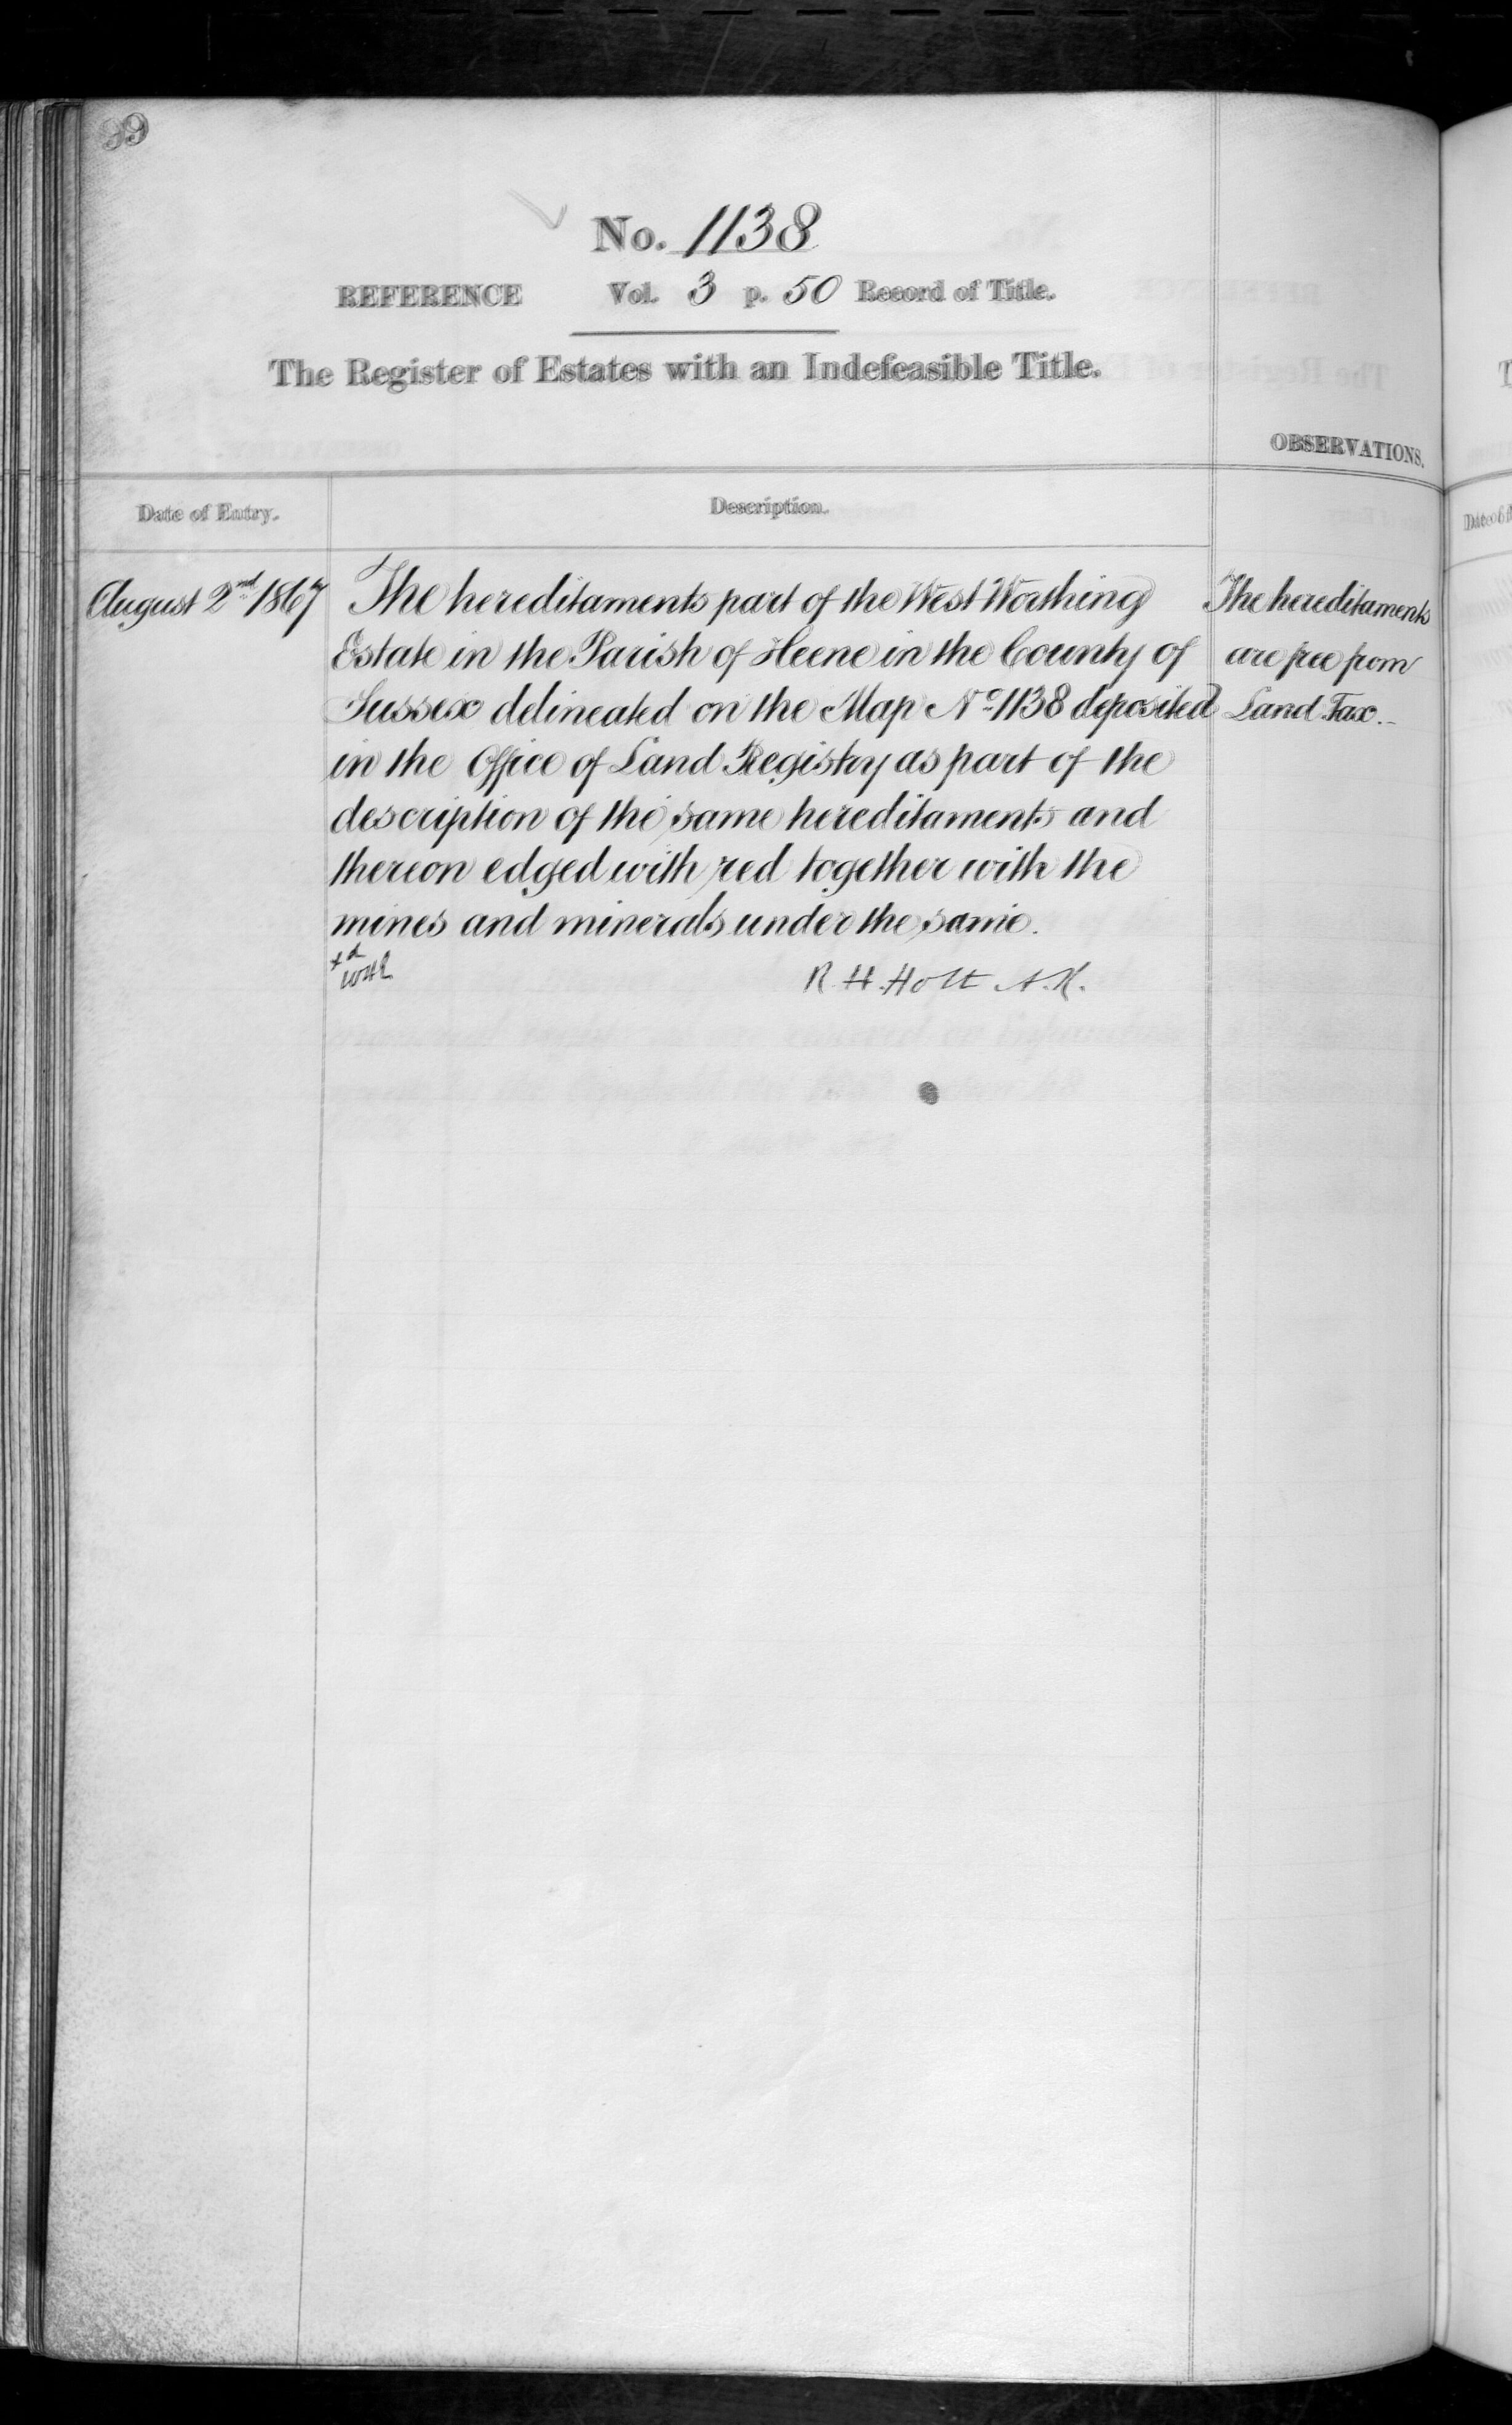 No. 1138
REFERENCE Vol. 3 p. 50 Record of Title.
The Register of Estates with an Indefeasible Title.
OBSERVATIONS.
Date of Entry.
Description.
August 2nd 1867
The hereditaments part of the West Worthing
Estate in the Parish of Heene in the County of
Sussex delineated on the Map No 1138 deposited
in the Office of Land Registry as part of the
description of the same hereditaments and
thereon edged with red together with the
mines and minerals under the same.
R. H. Holt A.R.
The hereditaments
are free from
Land Tax.